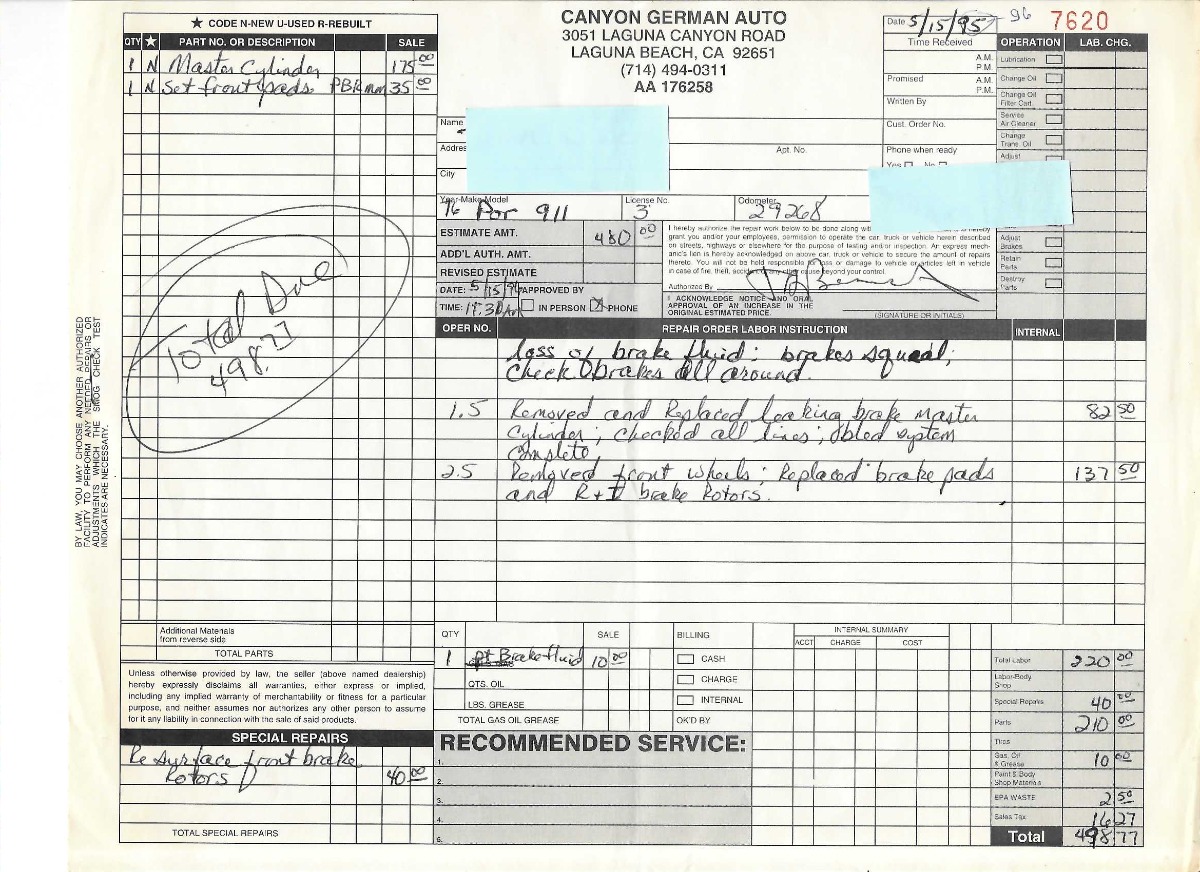 ★ CODE N-NEW U-USED R-REBUILT
QTY ★ PART NO. OR DESCRIPTION SALE
1 N Master Cylinder 175 00
1 N Set front pads PBR mm 35 00
Total Due
498.77
BY LAW, YOU MAY CHOOSE ANOTHER AUTHORIZED
FACILITY TO PERFORM ANY NEEDED REPAIRS OR
ADJUSTMENTS WHICH THE SMOG CHECK TEST
INDICATES ARE NECESSARY.
CANYON GERMAN AUTO
3051 LAGUNA CANYON ROAD
LAGUNA BEACH, CA 92651
(714) 494-0311
AA 176258
Date 5/15/95 96 7620
Time Received
A.M.
P.M.
Promised
A.M.
P.M.
Written By
Cust. Order No.
Phone when ready
Yes No
Name
Addres
Apt. No.
City
Year-Make-Model
Por 911
License No.
3
Odometer
29268
OPERATION LAB. CHG.
Lubrication
Change Oil
Change Oil
Filter Cart.
Service
Air Cleaner
Change
Trans. Oil
Adjust
Adjust
Brakes
Retain
Parts
Destroy
Parts
ESTIMATE AMT. 480 00
ADD'L AUTH. AMT.
REVISED ESTIMATE
DATE: 5/15/96 APPROVED BY
TIME: IN PERSON PHONE
I hereby authorize the repair work below to be done along with hereby
grant you and/or your employees, permission to operate the car, truck or vehicle herein described
on streets, highways or elsewhere for the purpose of testing and/or inspection. An express mech-
anic's lien is hereby acknowledged on above car, truck or vehicle to secure the amount of repairs
thereto. You will not be held responsible for loss or damage to vehicle or articles left in vehicle
in case of fire, theft, accident or any other cause beyond your control.
Authorized By
I ACKNOWLEDGE NOTICE AND ORAL
APPROVAL OF AN INCREASE IN THE
ORIGINAL ESTIMATED PRICE.
(SIGNATURE OR INITIALS)
OPER NO. REPAIR ORDER LABOR INSTRUCTION INTERNAL
loss of brake fluid: brakes squeal;
check brakes all around.
1.5 Removed and Replaced leaking brake Master 82 50
Cylinder; checked all lines; bled system
complete
2.5 Removed front wheels; Replaced brake pads 137 50
and R+I brake Rotors.
Additional Materials
from reverse side
TOTAL PARTS
Unless otherwise provided by law, the seller (above named dealership)
hereby expressly disclaims all warranties, either express or implied,
including any implied warranty of merchantability or fitness for a particular
purpose, and neither assumes nor authorizes any other person to assume
for it any liability in connection with the sale of said products.
SPECIAL REPAIRS
Resurface front brake
Rotors 40 00
TOTAL SPECIAL REPAIRS
QTY SALE
1 pt Brake fluid 10 00
QTS. OIL
LBS. GREASE
TOTAL GAS OIL GREASE
BILLING
CASH
CHARGE
INTERNAL
OK'D BY
INTERNAL SUMMARY
ACCT CHARGE COST
RECOMMENDED SERVICE:
1.
2.
3.
4.
5.
Total Labor 220 00
Labor-Body
Shop
Special Repairs 40 00
Parts 210 00
Tires
Gas, Oil
& Grease 10 00
Paint & Body
Shop Materials
EPA WASTE 2 50
Sales Tax 16 27
Total 498 77